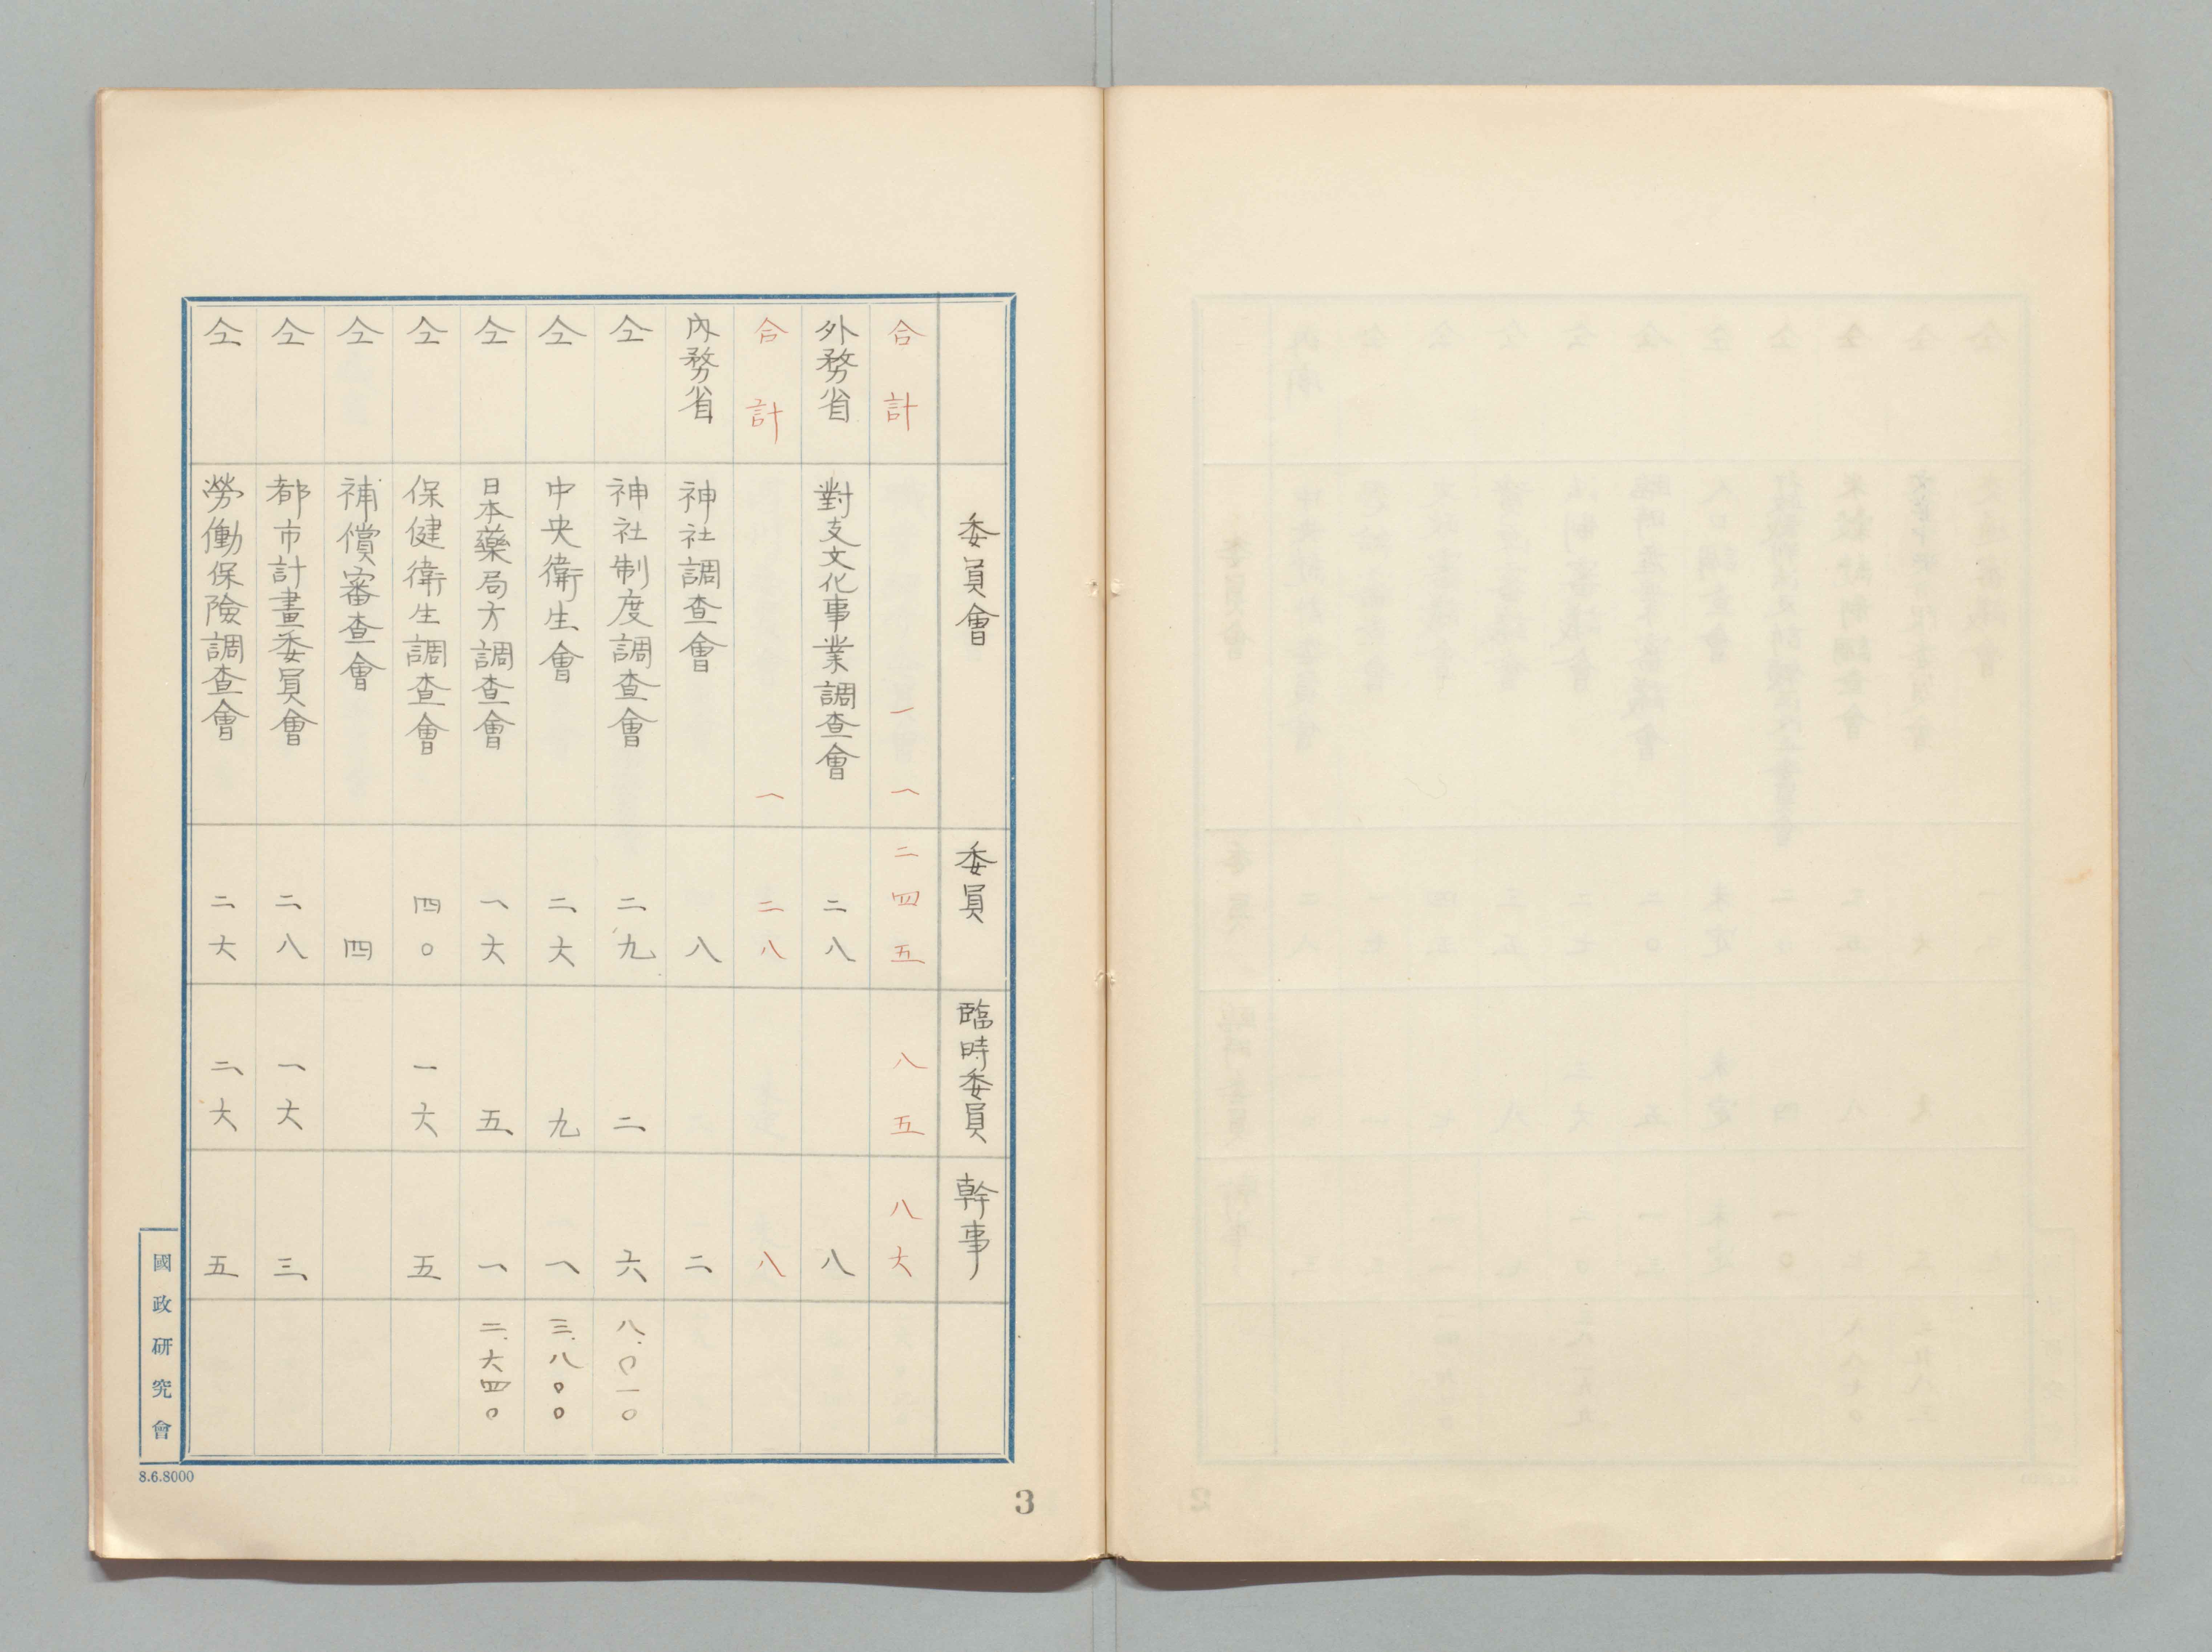 委員會 委員 臨時委員 幹事
合計 一一 二四五 八五 八六
外務省 對支文化事業調査會 二八 八
合計 一 二八 八
內務省 神社調査會 八 二
仝 神社制度調査會 二九 二 六 八.〇一〇
仝 中央衛生會 二六 九 一 三.八〇〇
仝 日本藥局方調査會 一六 五 一 二.六四〇
仝 保健衛生調査會 四〇 一六 五
仝 補償審査會 四
仝 都市計畫委員會 二八 一六 三
仝 勞働保險調査會 二六 二六 五
國政研究會
8.6.8000
3